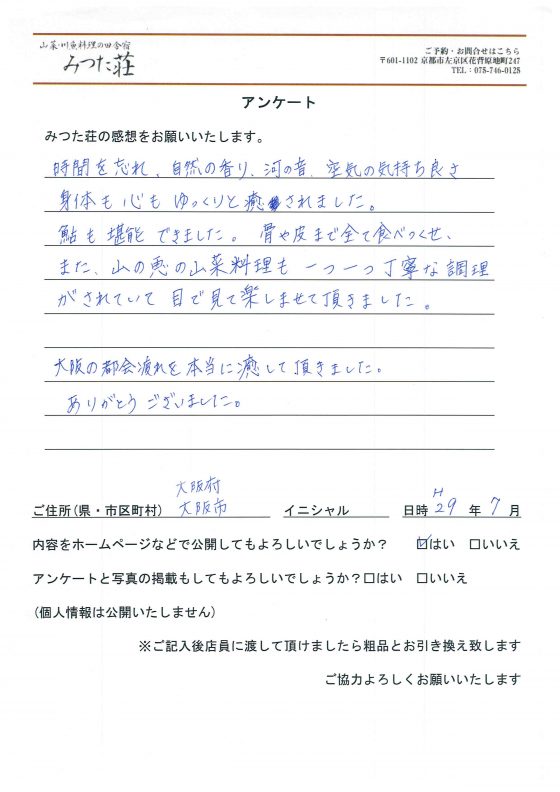 山菜・川魚料理の田舎宿
みつた荘
ご予約・お問合せはこちら
〒601-1102 京都市左京区花脊原地町247
TEL:075-746-0128
アンケート
みつた荘の感想をお願いいたします。
時間を忘れ、自然の香り、河の音、空気の気持ち良さ
身体も心もゆっくりと癒されました。
鮎も堪能できました。骨や皮まで全て食べつくせ、
また、山の恵の山菜料理も一つ一つ丁寧な調理
がされていて目で見て楽しませて頂きました。
大阪の都会疲れを本当に癒して頂きました。
ありがとうございました。
大阪府
ご住所(県・市区町村) 大阪市 イニシャル 日時 H29 年 7 月
内容をホームページなどで公開してもよろしいでしょうか? ☑はい □いいえ
アンケートと写真の掲載もしてもよろしいでしょうか?□はい □いいえ
(個人情報は公開いたしません)
※ご記入後店員に渡して頂けましたら粗品とお引き換え致します
ご協力よろしくお願いいたします